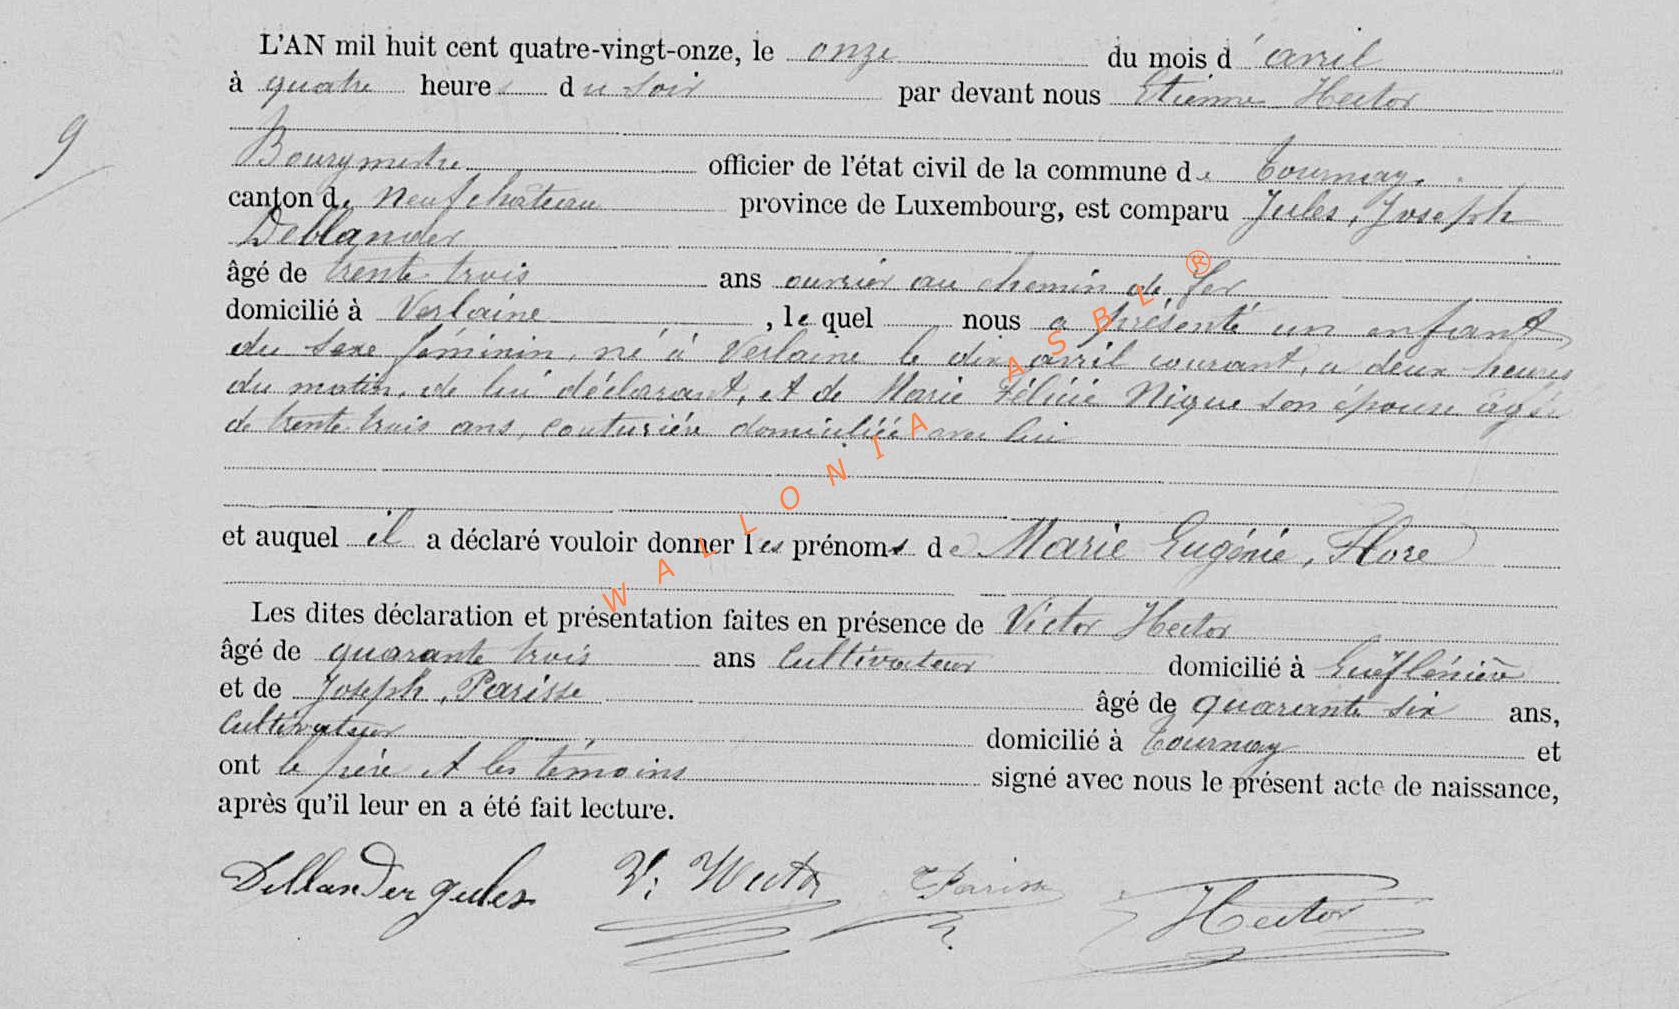 L'AN mil huit cent quatre-vingt-onze, le onze du mois d'avril
à quatre heures du soir par devant nous Etienne Hector
9
Bourgmestre officier de l'état civil de la commune de Tournay.
canton de Neufchâteau province de Luxembourg, est comparu Jules, Joseph
Deblander
âgé de trente trois ans ouvrier au chemin de fer
domicilié à Verlaine, le quel nous a présenté un enfant
du sexe féminin, né à Verlaine le dix avril courant, à deux heures
du matin, de lui déclarant, et de Marie Félicie Nique son épouse âgée
de trente trois ans, couturière domiciliée avec lui
et auquel il a déclaré vouloir donner les prénoms de Marie Eugénie, Flore
Les dites déclaration et présentation faites en présence de Victor Hector
âgé de quarante trois ans Cultivateur domicilié à
et de Joseph, Parisse âgé de quarante six ans,
Cultivateur domicilié à Tournay et
ont le père et les témoins signé avec nous le présent acte de naissance,
après qu'il leur en a été fait lecture.
Deblander jules V. Hector J Parisse Hector
WALLONIA ASBL ®